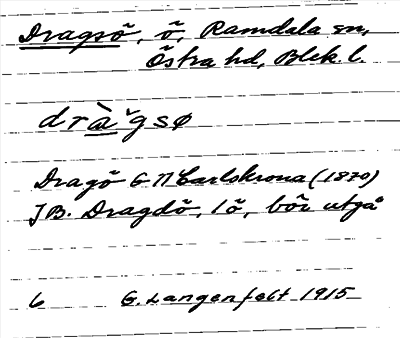 Dragsö, ö, Ramdala sn,
Östra hd, Blek. l.
dràˇgsø
Dragö GN Carlskrona (1870)
JB. Dragdö, 1 ö, bör utgå
6 G. Langenfelt 1915